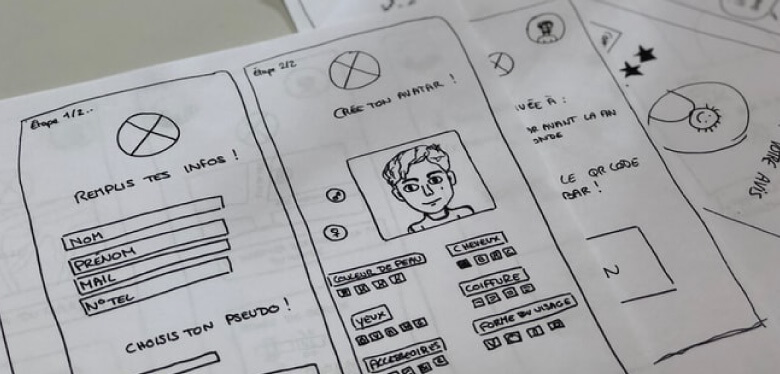 Étape 1/2..
REMPLIS TES INFOS !
NOM
PRÉNOM
MAIL
N° TEL
CHOISIS TON PSEUDO !
Étape 2/2
CRÉE TON AVATAR !
COULEUR DE PEAU
YEUX
ACCESSOIRES
CHEVEUX
COIFFURE
FORME DU VISAGE
VÉE À :
AVANT LA FIN
LE QR CODE
BAR !
AVIS